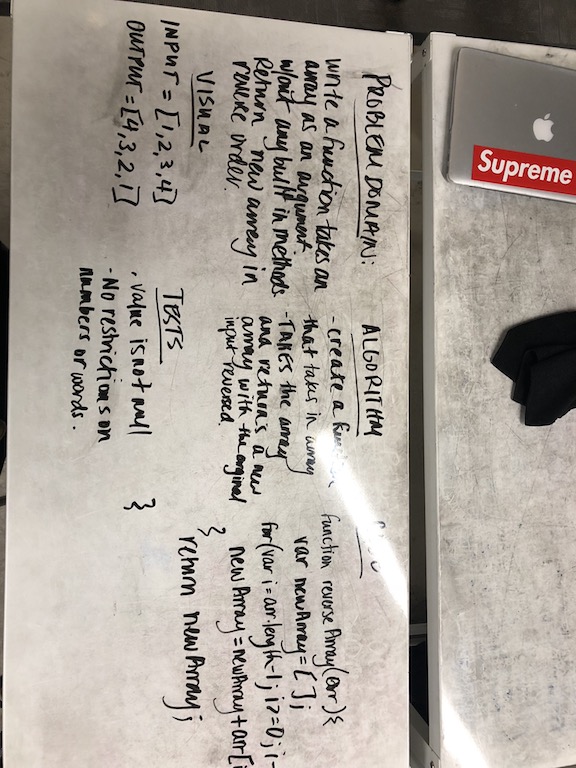 PROBLEM DOMAIN:
Write a function takes an
array as an argument
w/out any built in methods
Return new array in
reverse order.
VISUAL
INPUT = [1,2,3,4]
OUTPUT = [4,3,2,1]
ALGORITHM
- create a
that takes in array
- Takes the array
and returns a new
array with the orginal
input reversed.
TESTS
. value is not null
- No restrictions on
numbers or words.
function reverseArray(arr){
var newArray = [];
for(var i = arr.length-1; i>=0; i-
newArray = newArray + arr[i
}
return newArray;
}
Supreme